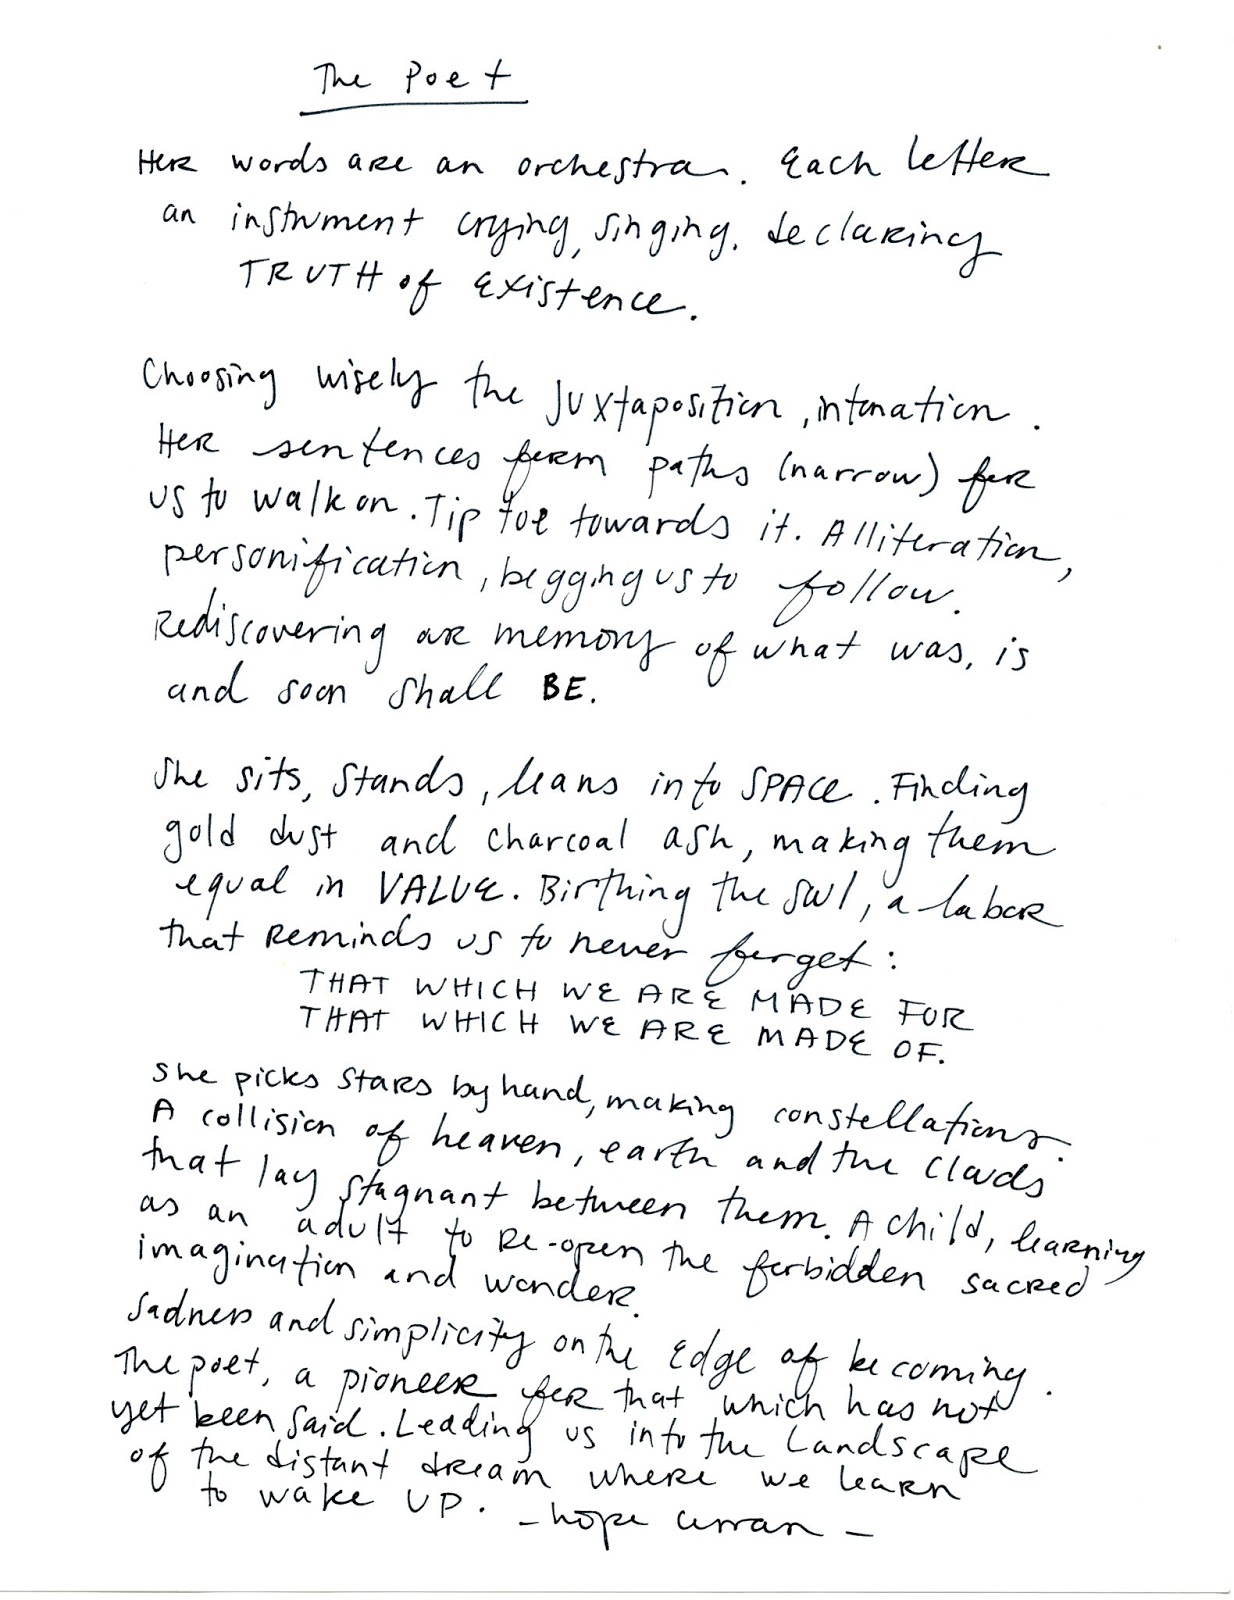 The Poet
Her words are an orchestra. Each letter
an instrument crying, singing, declaring
TRUTH of existence.
Choosing wisely the juxtaposition, intonation.
Her sentences form paths (narrow) for
us to walk on. Tip toe towards it. Alliteration,
personification, begging us to follow.
Rediscovering our memory of what was, is
and soon shall BE.
She sits, stands, leans into SPACE. Finding
gold dust and charcoal ash, making them
equal in VALUE. Birthing the soul, a labor
that reminds us to never forget:
THAT WHICH WE ARE MADE FOR
THAT WHICH WE ARE MADE OF.
She picks stars by hand, making constellations.
A collision of heaven, earth and the clouds
that lay stagnant between them. A child, learning
as an adult to re-open the forbidden sacred
imagination and wonder.
Sadness and simplicity on the edge of becoming.
The poet, a pioneer for that which has not
yet been said. Leading us into the landscape
of the distant dream where we learn
to wake UP. - hope curran -